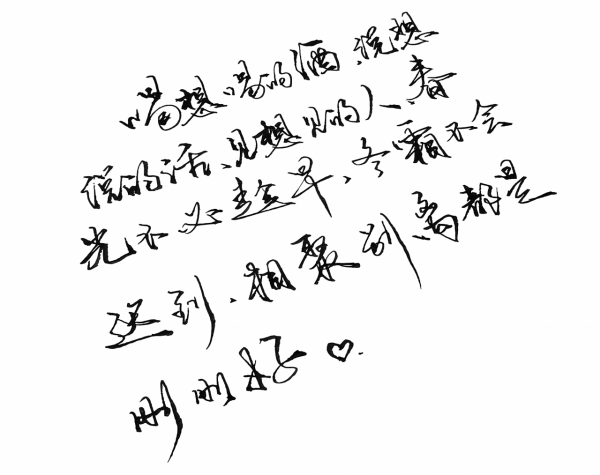 喝想喝的酒、说想
说的话、见想见的人、春
光不必趁早、冬霜不会
迟到、相聚别离都是
刚刚好♡.